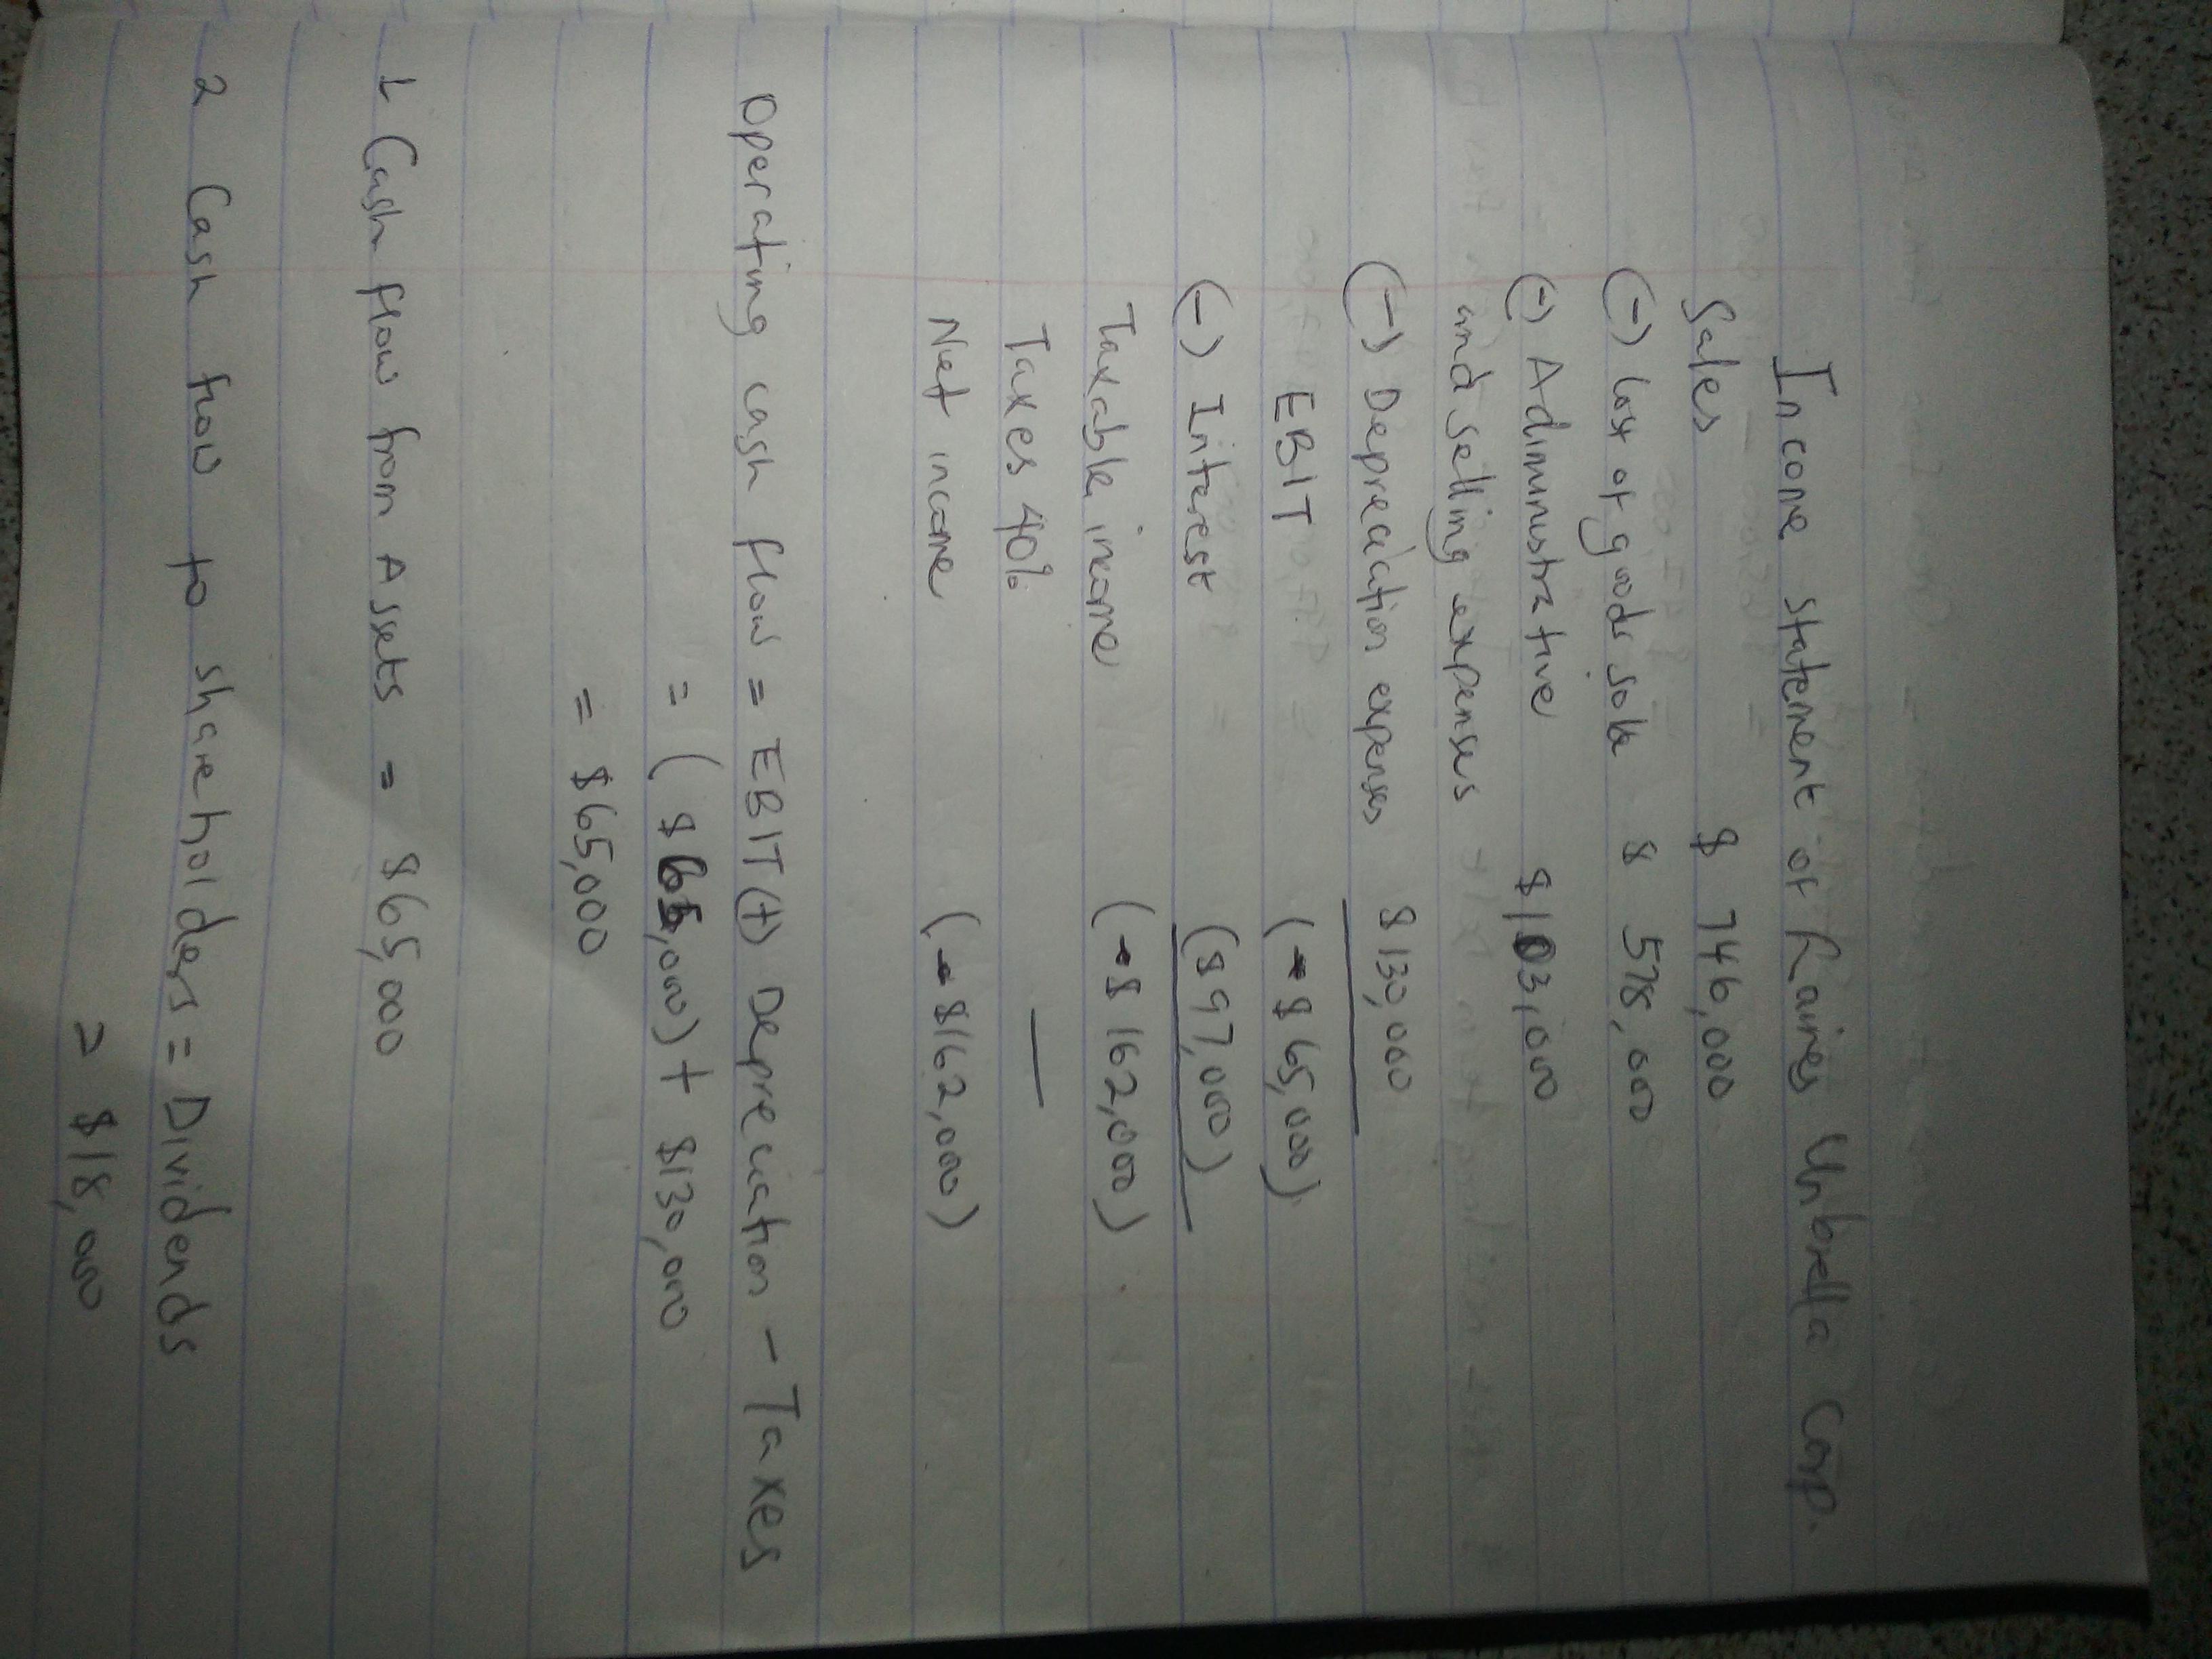 Income statement of Raines Umbrella Corp.
Sales $ 746,000
(-) Cost of goods solde $ 578,000
(-) Adiministrative $103,000
and selling expenses
(-) Depreciation expenses $130,000
EBIT (-$65,000)
(-) Interest ($97,000)
Taxable income (-$162,000)
Taxes 40% —
Net income (-$162,000)
Operating cash flow = EBIT (+) Depreciation - Taxes
= ($65,000) + $130,000
= $65,000
1 Cash flow from Assets = $65,000
2 Cash flow to shareholders = Dividends
= $18,000